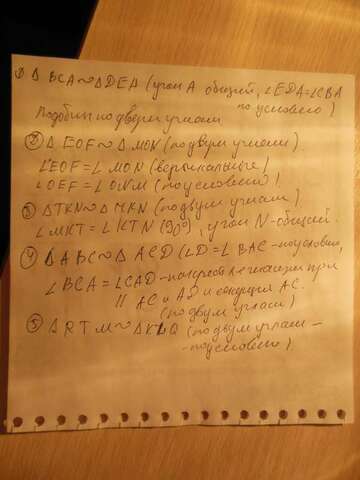 1) Δ BCA ~ Δ DEA (угол A общий, ∠EDA = ∠CBA
по условию)
Подобны по двум углам
② Δ EOF ~ Δ MON (по двум углам).
∠EOF = ∠ MON (вертикальные)
∠OEF = ∠ ONM (по условию)
③ ΔTKN ~ Δ MKN (по двум углам)
∠MKT = ∠ KTN (90°), угол N - общий.
④ Δ ABC ~ Δ ACD (∠D = ∠ BAC - по условию,
∠BCA = ∠CAD - накрест лежащие при
|| AC и AD и секущей AC.
(по двум углам)
⑤ ΔRTM ~ ΔKLQ (по двум углам -
- по условию)